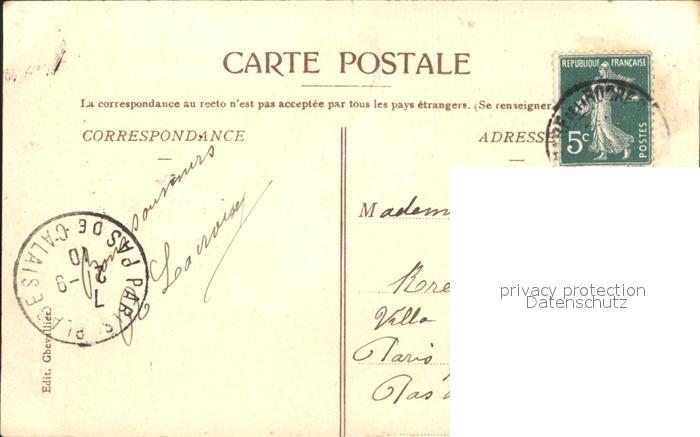 CARTE POSTALE
La correspondance au recto n'est pas acceptée par tous les pays étrangers. (Se renseigner
CORRESPONDANCE
ADRESSE
RÉPUBLIQUE FRANÇAISE
5c
POSTES
souvenirs
Lacroix
PARIS-PLAGE
PAS DE CALAIS
7 - 9
2
10
Edit. Chevallier.
Madem
Villa
Paris
Pas d
privacy protection
Datenschutz